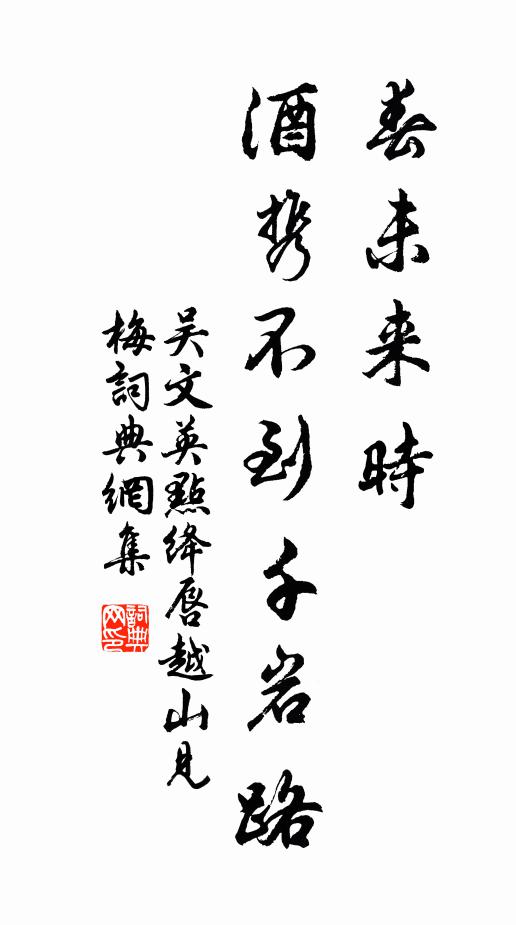 春未来時
酒携不到千岩路
吴文英點绛唇越山見
梅詞典網集
詞典网印